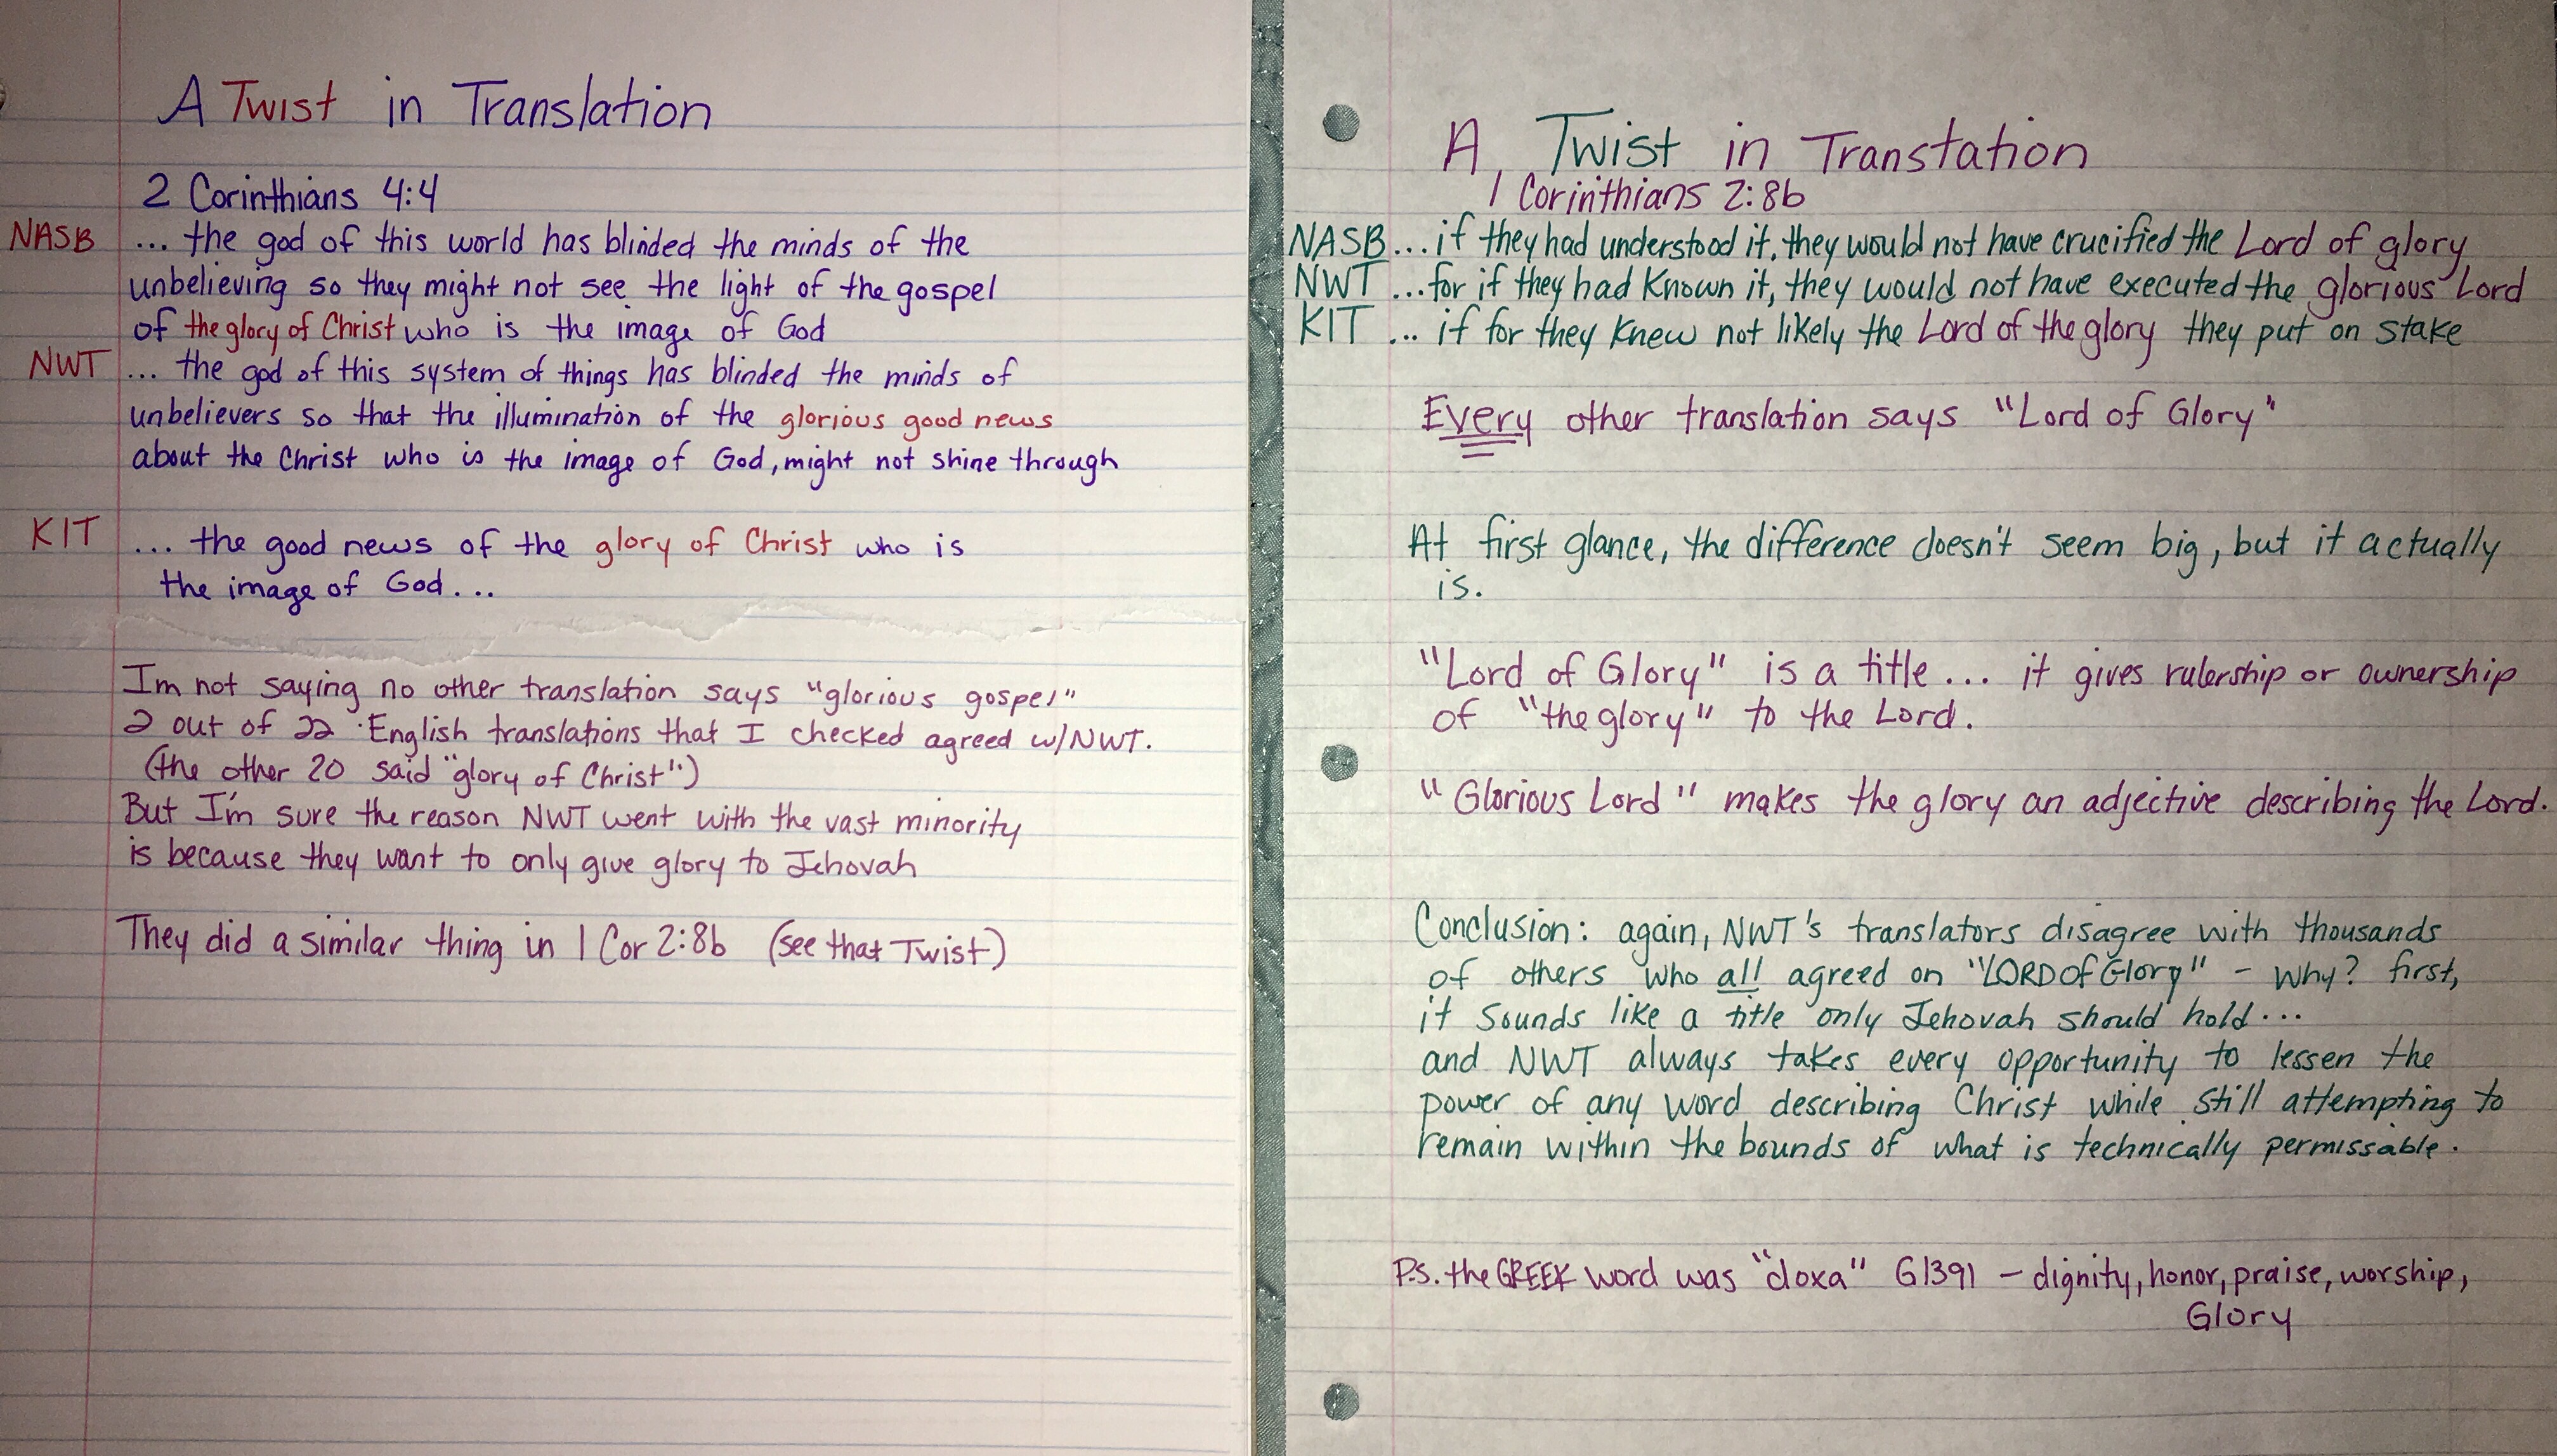 A Twist in Translation
2 Corinthians 4:4
NASB ... the god of this world has blinded the minds of the
unbelieving so they might not see the light of the gospel
of the glory of Christ who is the image of God
NWT ... the god of this system of things has blinded the minds of
unbelievers so that the illumination of the glorious good news
about the Christ who is the image of God, might not shine through
KIT ... the good news of the glory of Christ who is
the image of God...
Im not saying no other translation says "glorious gospel"
2 out of 22 English translations that I checked agreed w/NWT.
(the other 20 said "glory of Christ")
But I'm sure the reason NWT went with the vast minority
is because they want to only give glory to Jehovah
They did a similar thing in 1 Cor 2:8b (see that Twist)
A Twist in Translation
1 Corinthians 2:8b
NASB ... if they had understood it, they would not have crucified the Lord of glory
NWT ... for if they had known it, they would not have executed the glorious Lord
KIT ... if for they knew not likely the Lord of the glory they put on stake
Every other translation says "Lord of Glory"
At first glance, the difference doesn't seem big, but it actually
is.
"Lord of Glory" is a title... it gives rulership or ownership
of "the glory" to the Lord.
"Glorious Lord" makes the glory an adjective describing the Lord.
Conclusion: again, NWT's translators disagree with thousands
of others who all agreed on "LORD of Glory" - Why? first,
it sounds like a title only Jehovah should hold...
and NWT always takes every opportunity to lessen the
power of any word describing Christ while still attempting to
remain within the bounds of what is technically permissable.
P.S. the GREEK word was "doxa" G1391 - dignity, honor, praise, worship,
Glory